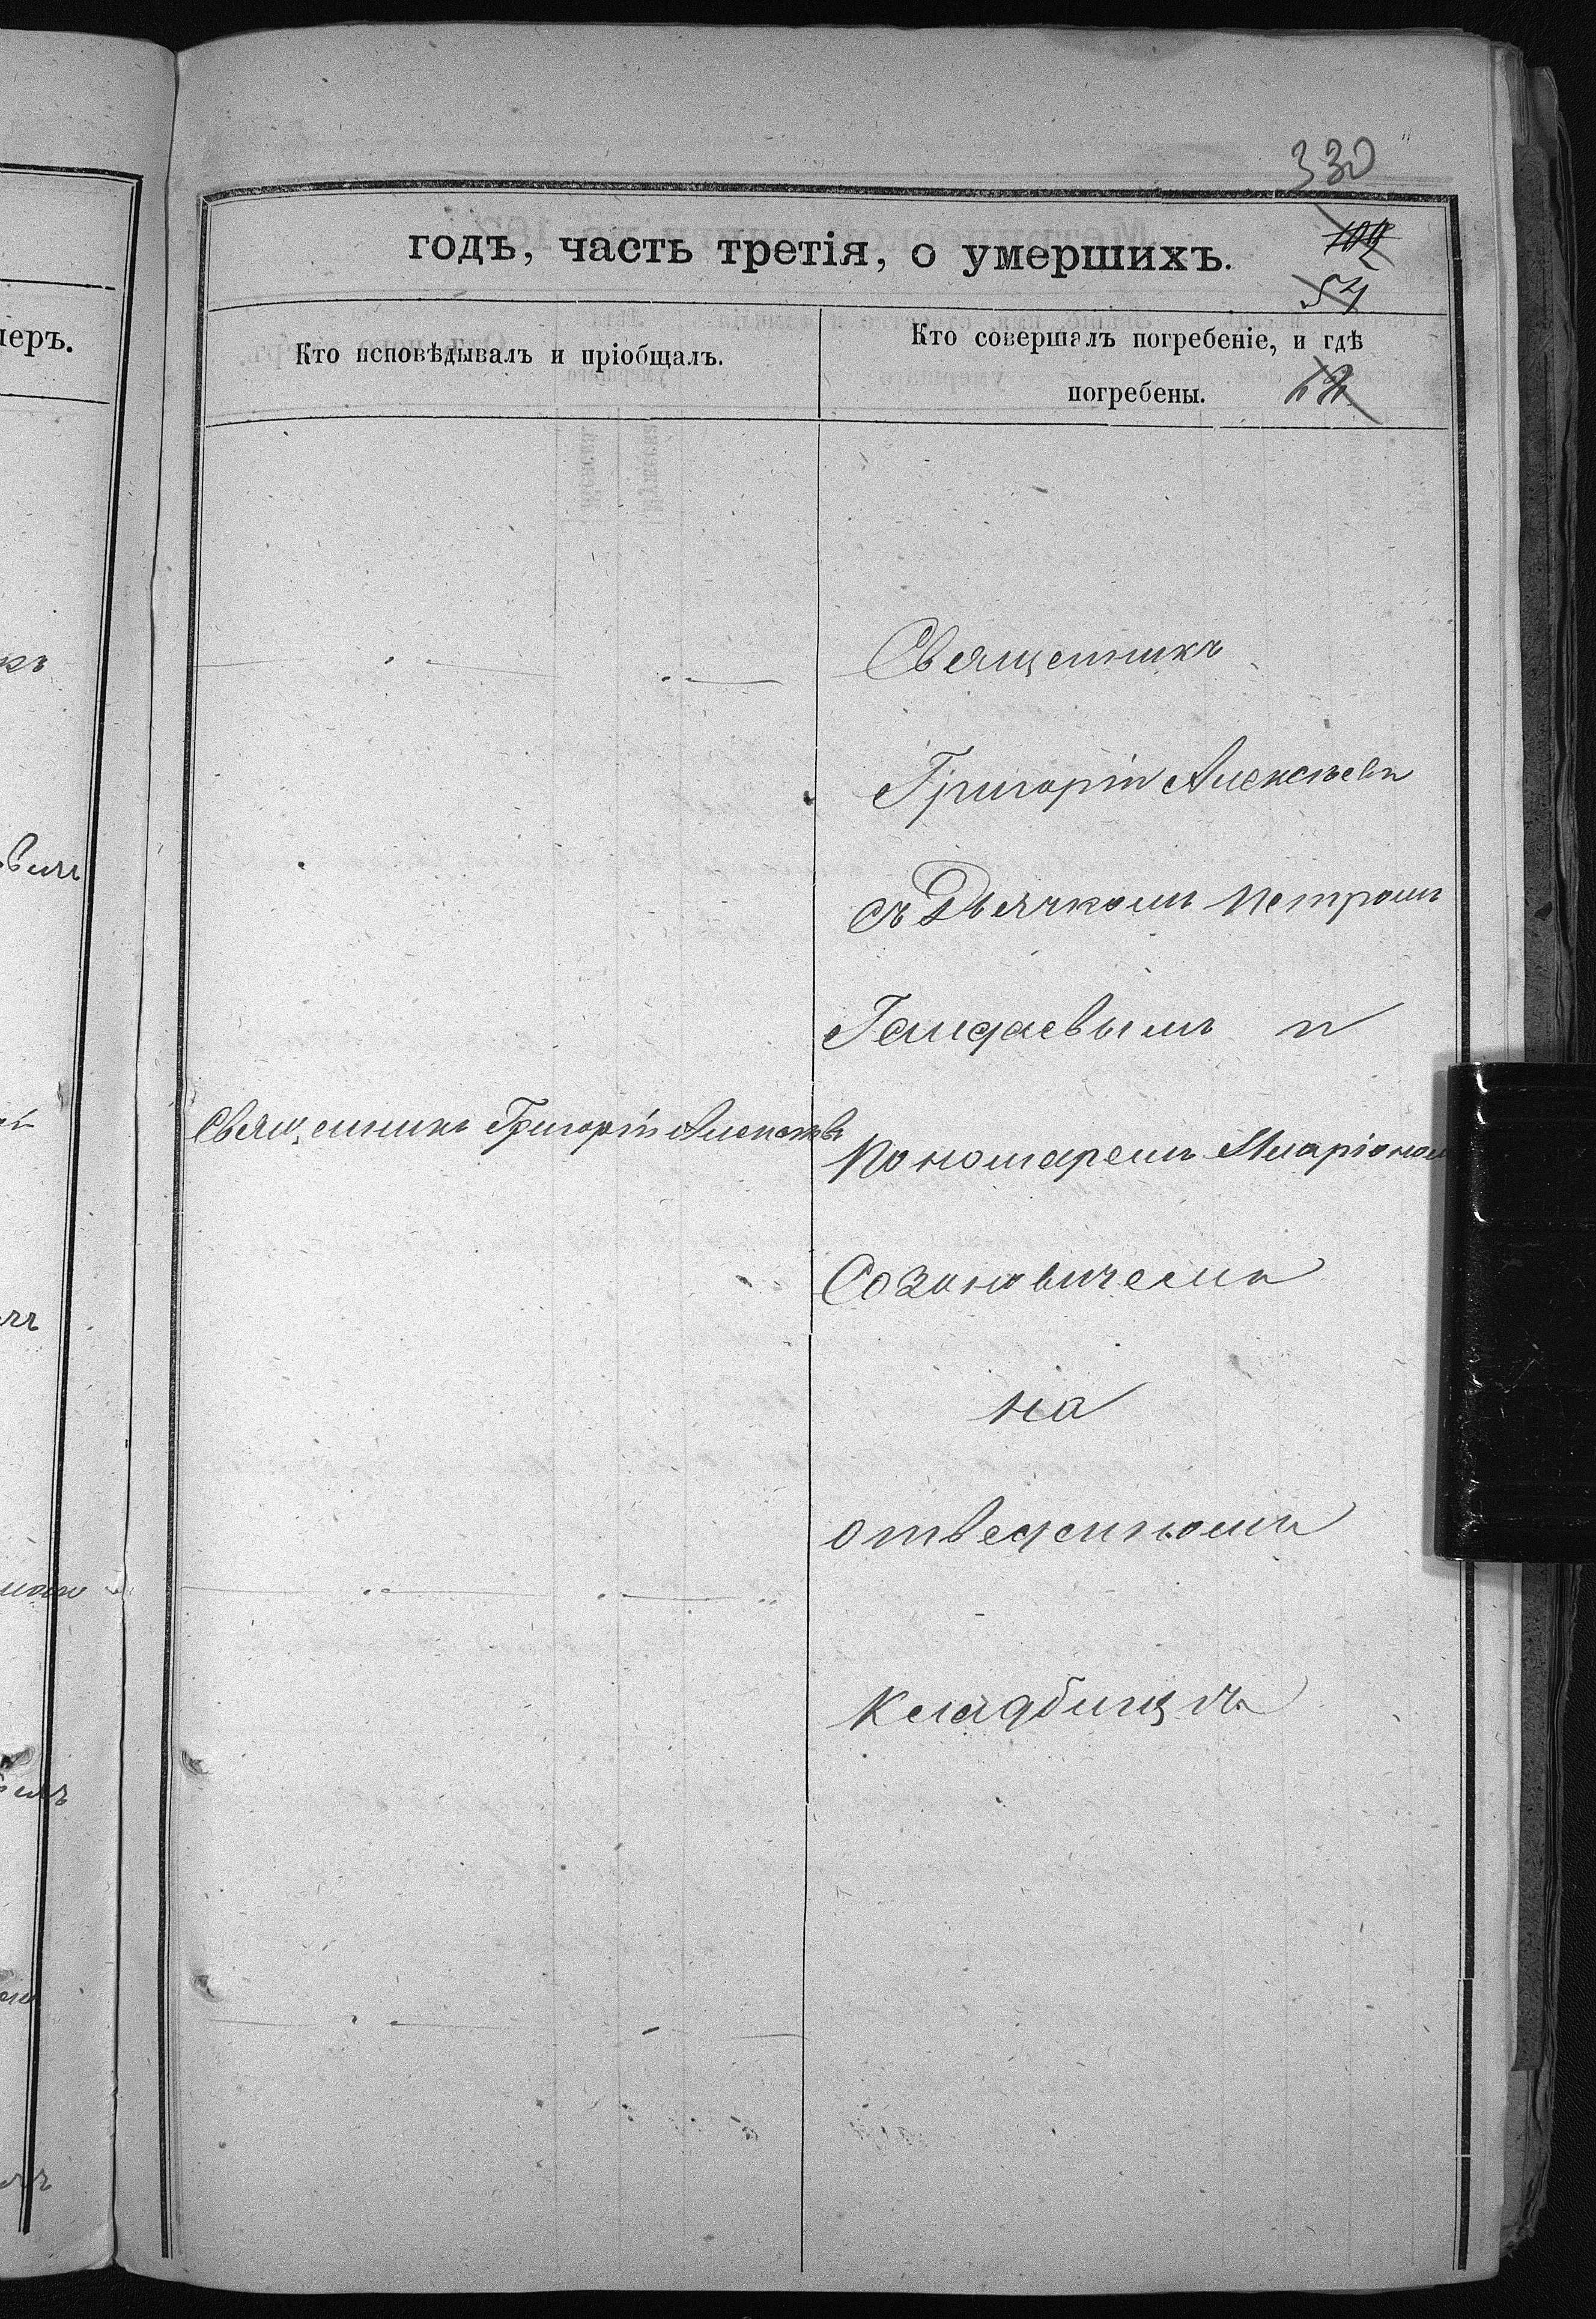 330
годъ, часть третія, о умершихъ.
109
54
Кто исповѣдывалъ и пріобщалъ.
Кто совершалъ погребеніе, и гдѣ
погребены.
меръ.
Священникъ
Григорій Алексѣевъ
съ Дьячкомъ Петромъ
и
Священникъ Григорій Алексѣевъ
Пономаремъ Иларіоном
Созоновичемъ
на
отведенномъ
кладбищѣ